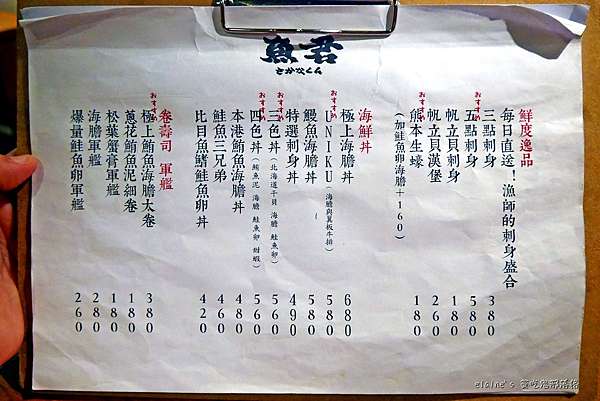 魚君
さかなくん
鮮度逸品
每日直送！漁師的刺身盛合
三點刺身 380
五點刺身 580
おすすめ
帆立貝刺身 180
帆立貝漢堡 260
熊本生蠔 180
おすすめ
（加鮭魚卵海膽＋160）
海鮮丼
極上海膽丼 680
おすすめ
UNIKU（海膽與翼板牛排） 580
鰻魚海膽丼 580
特選刺身丼 490
三色丼（北海道干貝 海膽 鮭魚卵） 560
おすすめ
四色丼（鮪魚泥 海膽 鮭魚卵 甜蝦） 560
おすすめ
本港鮪魚海膽丼 480
鮭魚三兄弟 460
比目魚鰭鮭魚卵丼 420
卷壽司 軍艦
極上鮪魚海膽太卷 380
おすすめ
蔥花鮪魚泥細卷 180
松葉蟹膏軍艦 180
海膽軍艦 280
爆量鮭魚卵軍艦 260